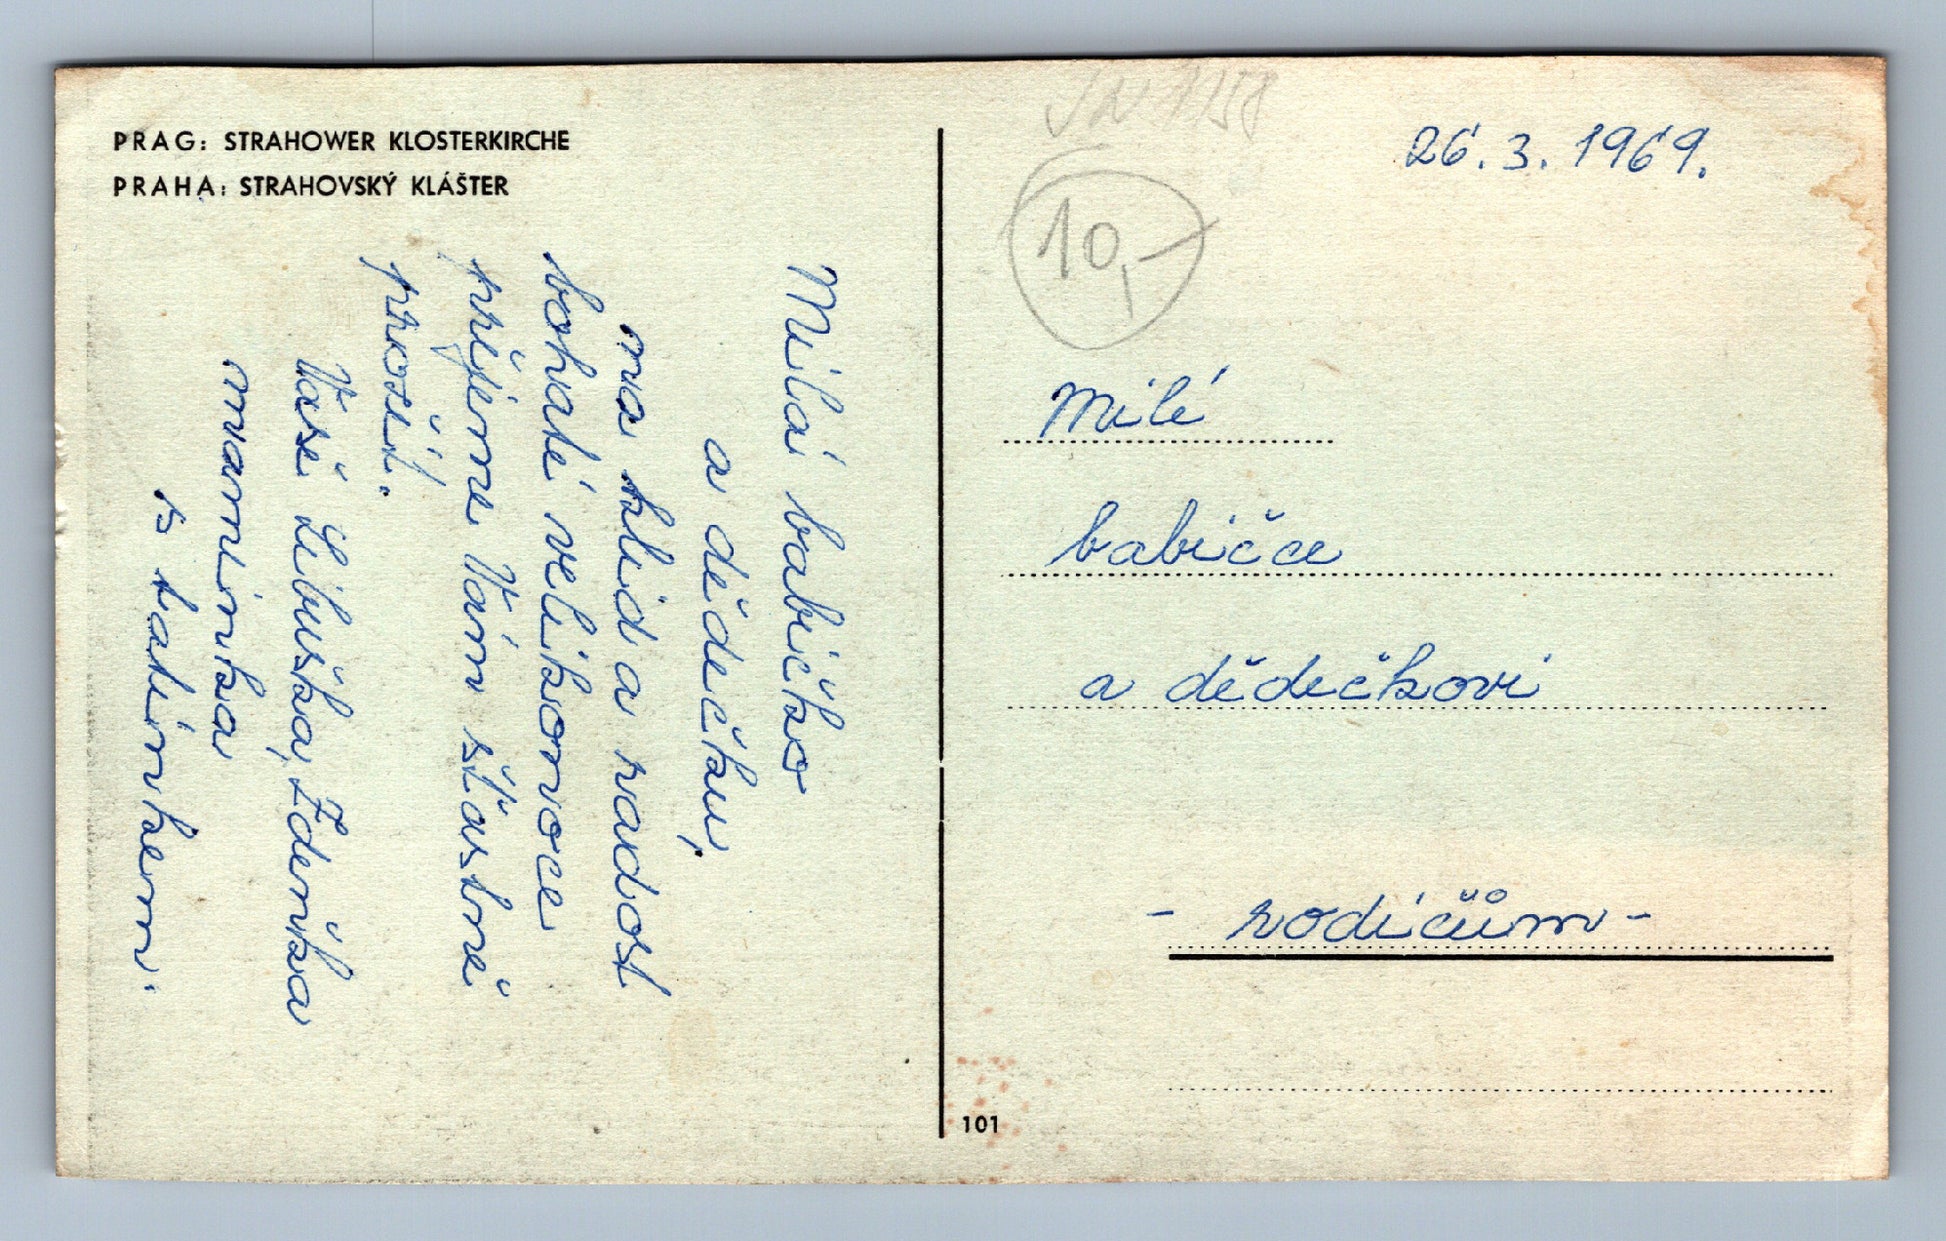 PRAG: STRAHOWER KLOSTERKIRCHE
PRAHA: STRAHOVSKÝ KLÁŠTER
Milá babičko
a dědečku,
na klid a radost
bohaté velikonoce
přejeme Vám šťastně
prožít.
Vaše Libuška, Zdeňka
maminka
s tatínkem.
26. 3. 1969.
10,-
Milé
babičce
a dědečkovi
- rodičům -
101